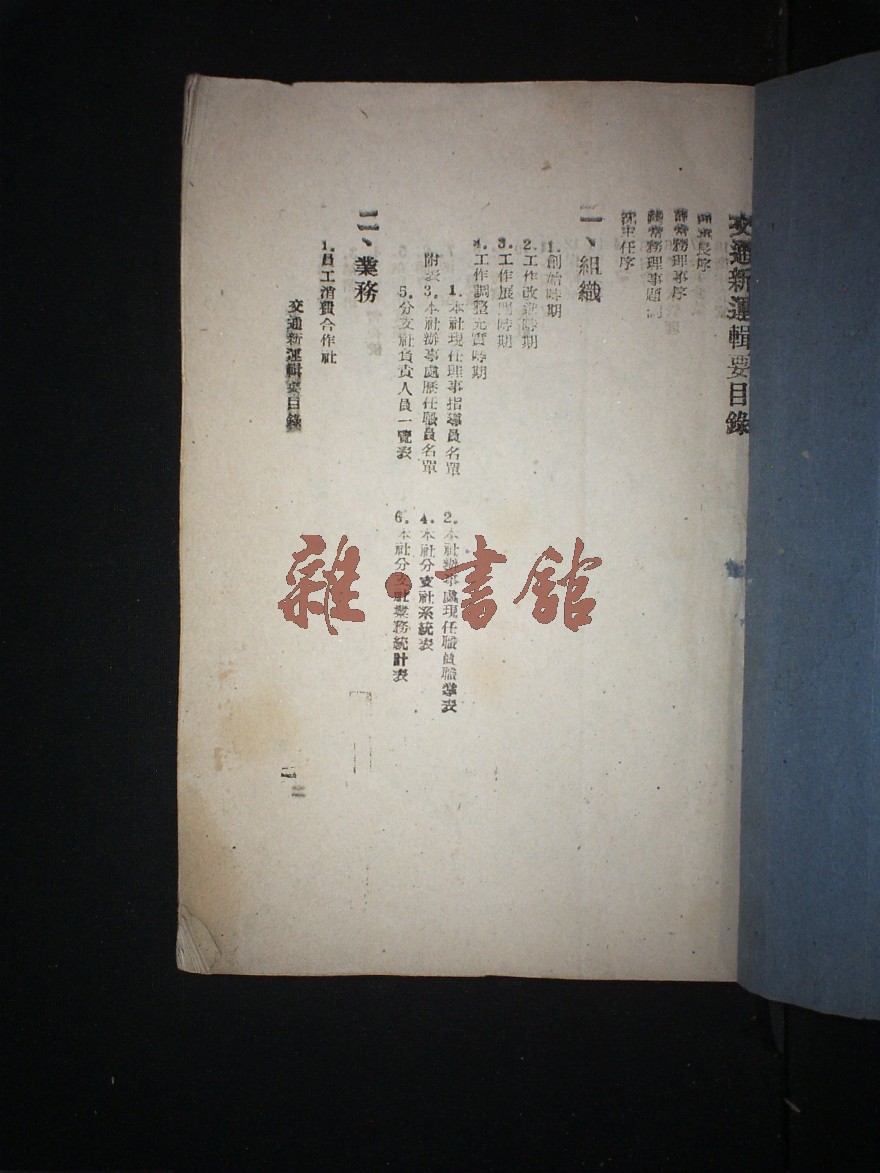 交通新運輯要目錄
社長序
常務理事序
常務理事題詞
沈主任序
一、組織
1.創始時期
2.工作改進時期
3.工作展開時期
4.工作調整充實時期
附表
1.本社現任理事指導員名單
2.本社辦事處現任職員職掌表
3.本社辦事處歷任職員名單
4.本社分支社系統表
5.分支社負責人員一覽表
6.本社分支社業務統計表
二、業務
1.員工消費合作社
交通新運輯要目錄
雜·書館